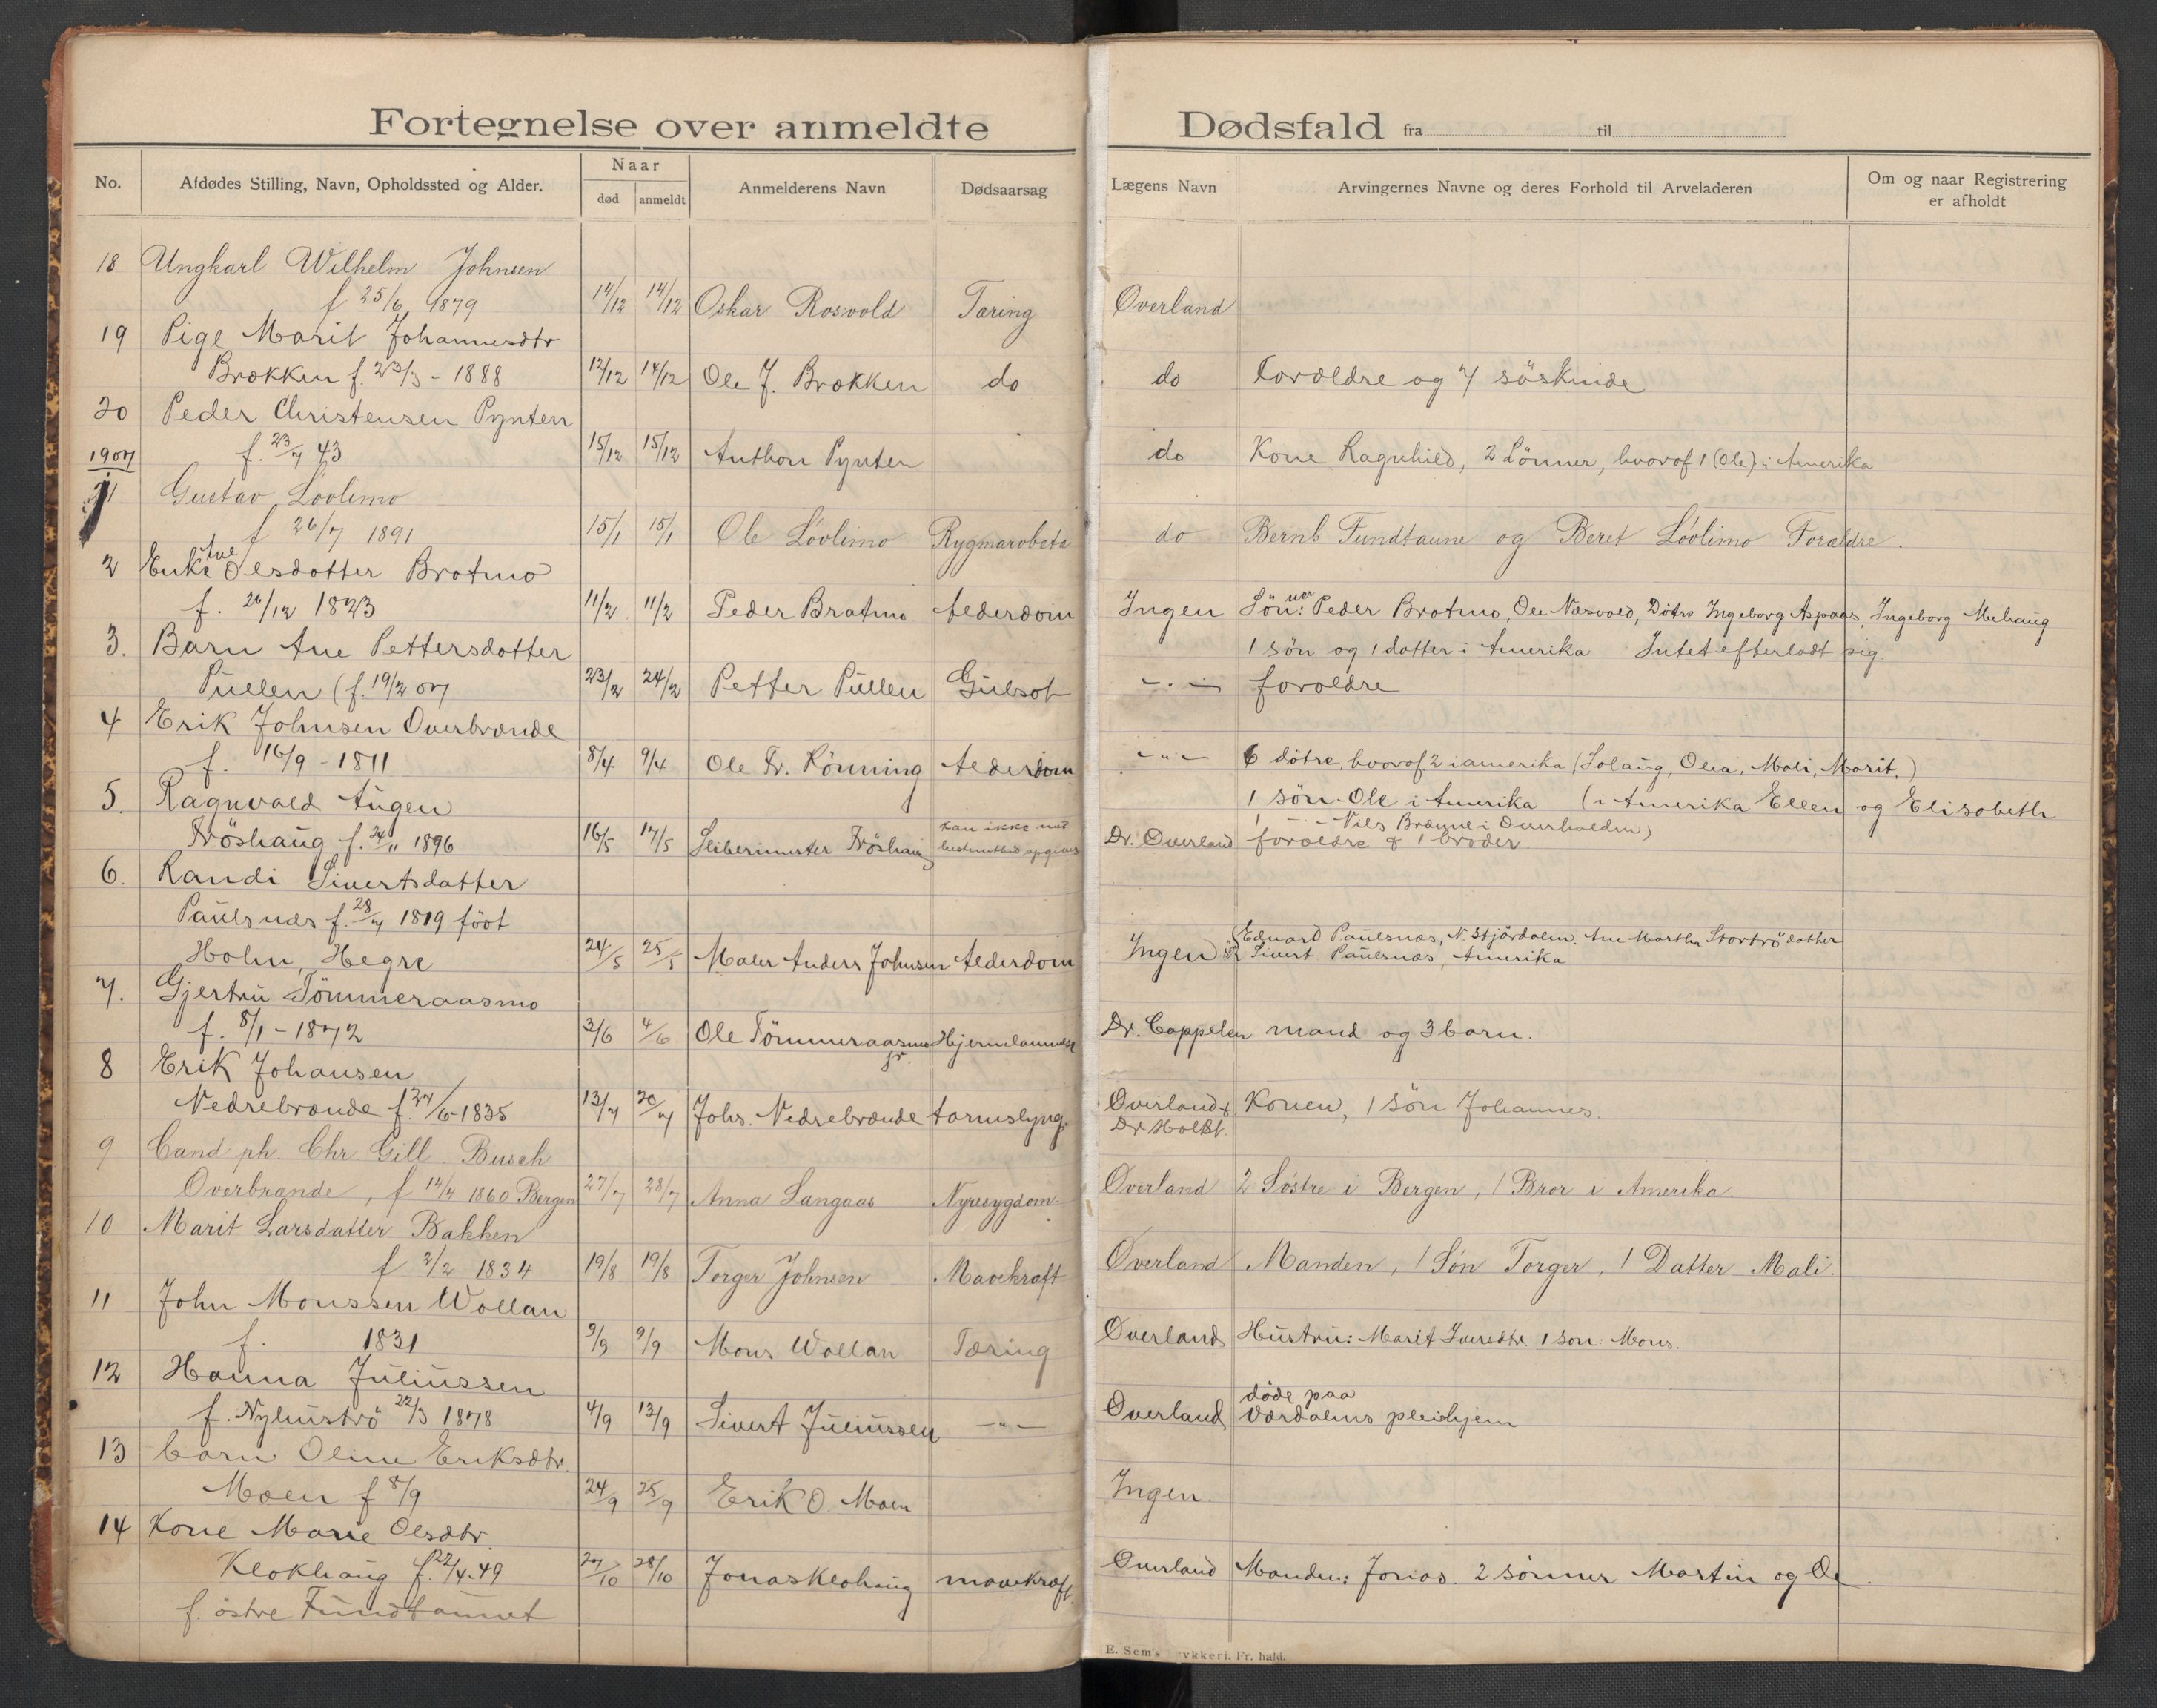 Fortegnelse over anmeldte Dødsfald fra til
No.
Afdødes Stilling, Navn, Opholdssted og Alder.
Naar
død anmeldt
Anmelderens Navn
Dødsaarsag
Lægens Navn
Arvingernes Navne og deres Forhold til Arveladeren
Om og naar Registrering
er afholdt
18 Ungkarl Wilhelm Johnsen
f 25/6 1879 14/12 14/12 Oskar Rosvold Tæring Overland
19 Pige Marit Johannesdtr
Brækken f. 23/3 - 1888 12/12 14/12 Ole J. Brækken do do Forældre og 7 söskinde
20 Peder Christensen Pynten
f. 23/7 43 15/12 15/12 Anthon Pynten do Kone Ragnhild, 2 Sönner, hvoraf 1 (Ole) i Amerika
1907
1 Gustav Lövlimo
f 26/7 1891 15/1 15/1 Ole Lövlimo do Bernt Fundtaune og Beret Lövlimo Forældre.
2 Enke Ane Olsdotter Bratmo
f. 26/12 1823 11/2 11/2 Peder Bratmo Alderdom Ingen Sönner: Peder Bratmo, Ole Næsvold, Döttre Ingeborg Aspaas, Ingeborg Mehaug
1 sön og 1 datter i Amerika Intet efterladt sig
3. Barn Ane Pettersdotter
Püllen (f. 19/2 07 23/2 24/2 Petter Püllen Gülsot -"- forældre
4 Erik Johnsen Overbrænde
f. 16/9 - 1811 8/4 9/4 Ole Fr. Rönning Alderdom -"- 6 dötre, hvoraf 2 i amerika (Solaug, Olea, Mali, Marit.)
1 sön Ole i Amerika (i Amerika Ellen og Elisabeth
1 -"- Nils Brænne i Overhalden)
5. Ragnvald Augen
Fröshaug f. 24/11 1896 16/5 17/5 Slibermester Fröshaug kan ikke med bestemthed opgives Dr. Overland forældre & 1 broder
6. Randi Sivertsdatter
Paulsnæs f. 28/7 1819 födt
Holm, Hegre 24/5 25/5 Maler Anders Johnsen Alderdom Ingen Edvard Paulsnæs, N. Stjördalen. Ane Martha Stortrö datter
Sivert Paulsnæs, Amerika
7. Gjertru Tömmeraasmo
f. 8/1 - 1872 3/6 4/6 Ole Tömmeraasmo jr. Dr. Cappelen mand og 3 barn.
8 Erik Johansen
Nedrebrænde f. 27/6 - 1835 13/7 20/7 Johs. Nedrebrænde tarmslyng. Overland & Dr Holst. Konen, 1 sön Johannes.
9 Cand ph. Chr. Gill Busch
Overbrænde, f 14/4 1860 Bergen 27/7 28/7 Anna Langaas Nyresygdom. Overland 2 Söstre i Bergen, 1 Bror i Amerika.
10 Marit Larsdatter Bakken
f 2/2 1834 19/8 19/8 Torger Johnsen Mavekræft Overland Manden, 1 Sön Torger, 1 Datter Mali.
11 John Monssen Wollan
f. 1831 9/9 9/9 Mons Wollan Tæring Overland Hustru: Marit Iversdtr. 1 son: Mons.
12 Hanna Juliussen
f. Nyhuströ 22/3 1878 4/9 13/9 Sivert Juliussen -"- Overland döde paa
Værdalens pleiehjem
13 barn Oline Eriksdtr.
Moen f 8/9 24/9 25/9 Erik O. Moen Ingen.
14 Kone Marie Olsdtr.
Klokhaug f. 22/4-49 27/10 28/10 Jonas Klokhaug mavekræft. Overland Manden: Jonas. 2 sönner Martin og Ole.
f. östre Fundtaunet
E. Sem's Trykkeri. Fr. hald.